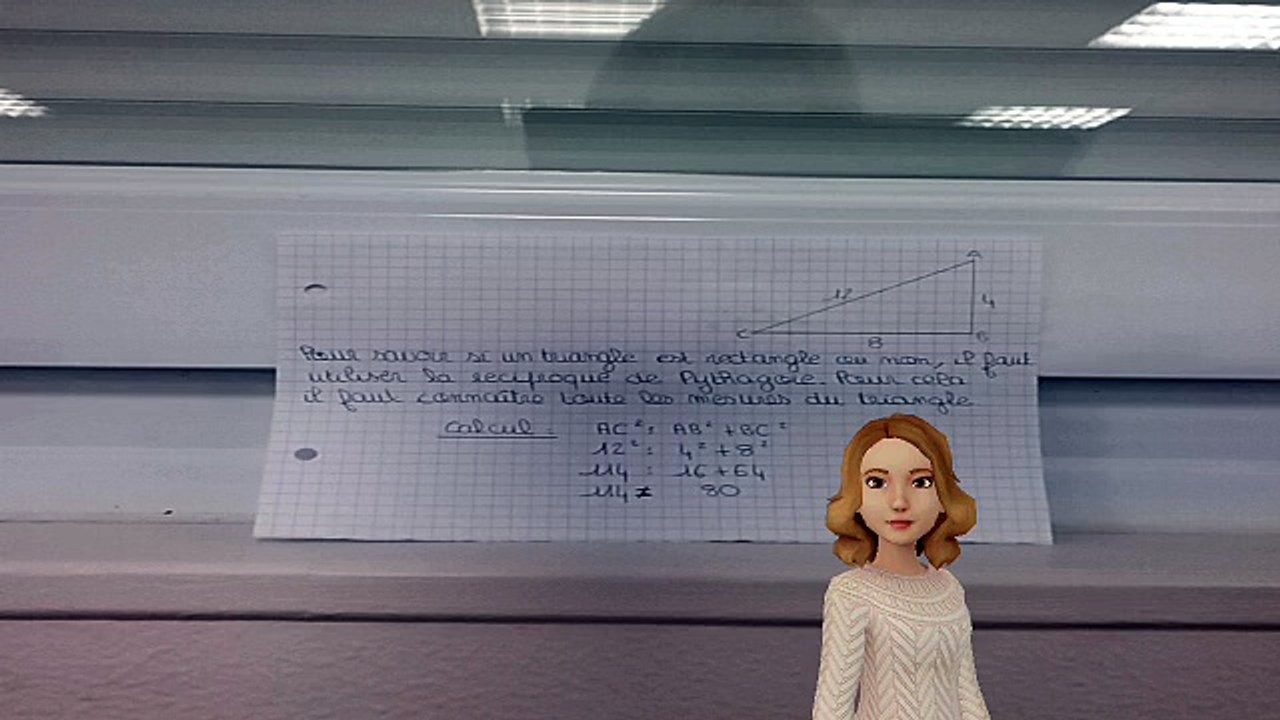 A
12
4
C
8
B
Pour savoir si un triangle est rectangle ou non, il faut
utiliser la reciproque de Pythagore. Pour cela
il faut connaître toute les mesures du triangle
Calcul : AC² = AB² + BC²
12² = 4² + 8²
114 = 16 + 64
114 ≠ 80